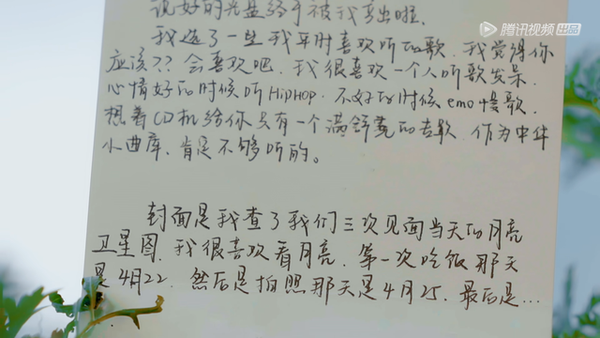 腾讯视频 出品
说好的光盘终于被我弄出啦.
我选了一些我平时喜欢听的歌.我觉得你
应该??会喜欢吧.我很喜欢一个人听歌发呆.
心情好的时候听HipHOP.不好的时候emo慢歌.
想着CD机给你只有一个满舒克的专辑.作为中华
小曲库.肯定不够听的。
封面是我查了我们三次见面当天的月亮
卫星图.我很喜欢看月亮.第一次吃饭那天
是4月22.然后是拍照那天是4月25.最后是...